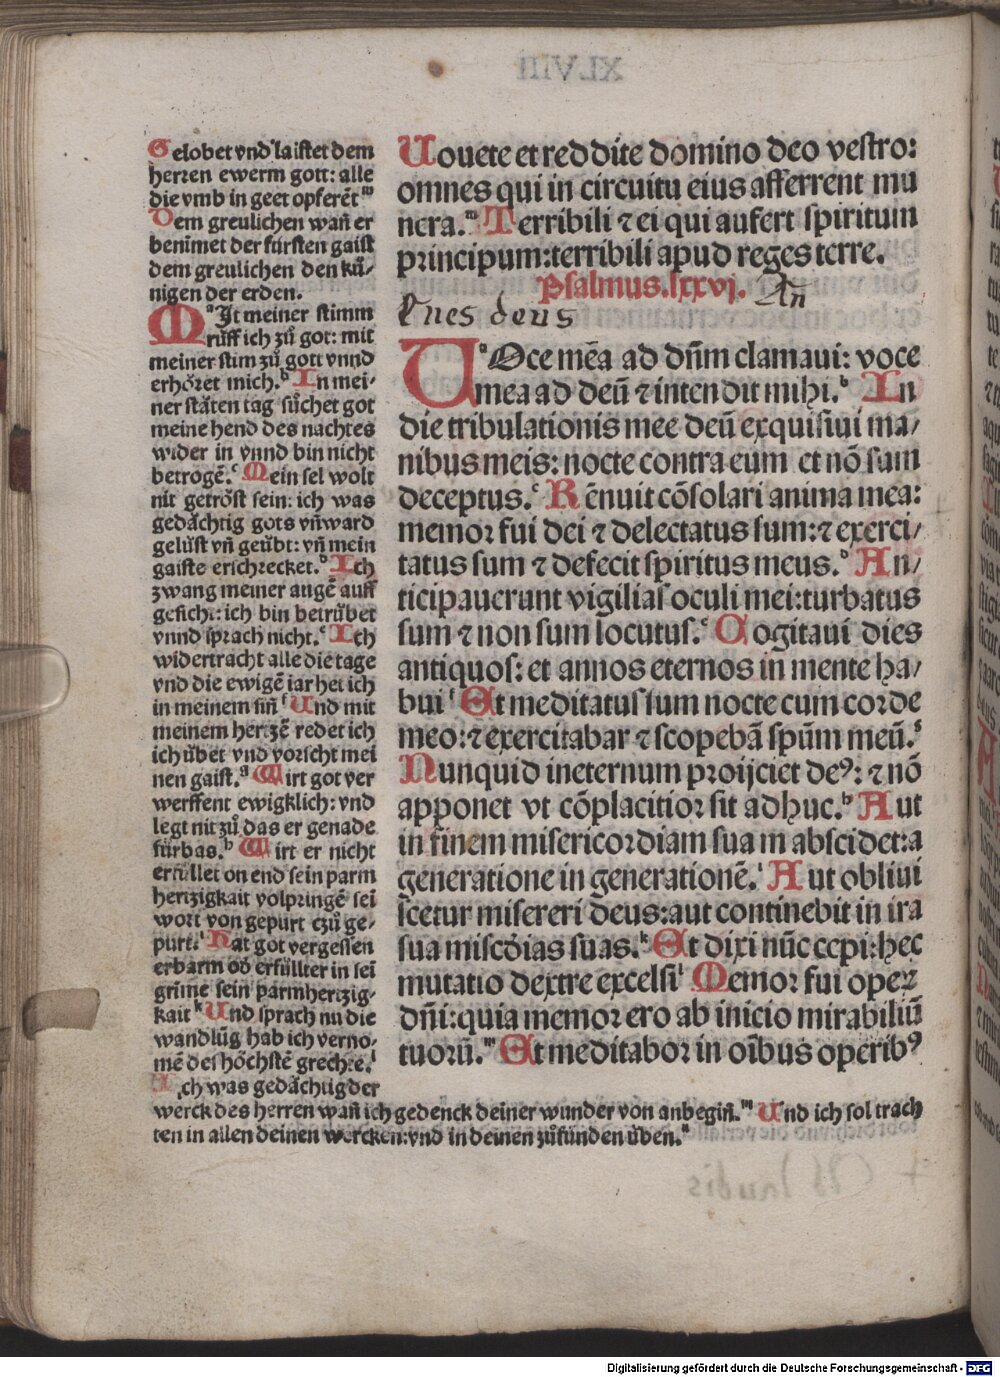 Gelobet vnd laistet dem
herren ewerm gott: alle
die vmb in geet opferēt ᵐ
Dem greulichen wañ er
benimet der fürsten gaist
dem greulichen den kü⸗
nigen der erden.
Mᵃit meiner stimm
rüff ich zů got: mit
meiner stim zů gott vnnd
erhöret mich.ᵇ In mei⸗
ner stäten tag sůchet got
meine hend des nachtes
wider in vnnd bin nicht
betrogē.ᶜ Mein sel wolt
nit getröst sein: ich was
gedächtig gots vñ ward
gelüst vñ geübt: vñ mein
gaiste erschrecket.ᵈ Ich
zwang meiner augē auff
gesicht: ich bin betrübet
vnnd sprach nicht.ᵉ Ich
widertracht alle die tage
vnd die ewigē iar het ich
in meinem siñ ᶠ Und mit
meinem hertzē redet ich
ich übet vnd vorscht mei
nen gaist.ᵍ Wirt got ver
werffent ewigklich: vnd
legt nit zů das er genade
fürbas.ʰ Wirt er nicht
erfüllet on end sein parm
hertzigkait volpringē sei
wort von gepurt czů ge⸗
purt.ⁱ Hat got vergessen
erbarm od erfüllter in sei
grime sein parmhertzig⸗
kait ᵏ Und sprach nu die
wandlūg hab ich verno⸗
mē des höchstē grechtē.ˡ
Ich was gedächtig der
werck des herren wañ ich gedenck deiner wunder von anbegiñ.ᵐ Und ich sol trach
ten in allen deinen wercken: vnd in deinen zůfünden üben.ⁿ
Uouete et reddite domino deo vestro:
omnes qui in circuitu eius afferrent mu
nera.ᵐ Terribili ⁊ ei qui aufert spiritum
principum: terribili apud reges terre.
Psalmus.lxxvi. An
deus
Uᵃoce mēa ad dñm clamaui: voce
mea ad deū ⁊ intendit mihi.ᵇ In
die tribulationis mee deū exquisiui ma⸗
nibus meis: nocte contra eum et nō sum
deceptus.ᶜ Rēnuit cōsolari anima mea:
memor fui dei ⁊ delectatus sum: ⁊ exerci⸗
tatus sum ⁊ defecit spiritus meus.ᵈ An⸗
ticipauerunt vigilias oculi mei: turbatus
sum ⁊ non sum locutus.ᵉ Cogitaui dies
antiquos: et annos eternos in mente ha⸗
bui ᶠ Et meditatus sum nocte cum corde
meo: ⁊ exercitabar ⁊ scopebā spūm meū.ᵍ
Nunquid in eternum proijciet deꝰ: ⁊ nō
apponet vt cōplacitior sit adhuc.ʰ Aut
in finem misericordiam sua m abscidet: a
generatione in generationē.ⁱ Aut obliui
scetur misereri deus: aut continebit in ira
sua miscōias suas.ᵏ Et dixi nūc cepi: hec
mutatio dextre excelsi ˡ Memor fui opeꝝ
dñi: quia memor ero ab inicio mirabiliū
tuorū.ᵐ Et meditabor in oībus operibꝰ
Digitalisierung gefördert durch die Deutsche Forschungsgemeinschaft - DFG